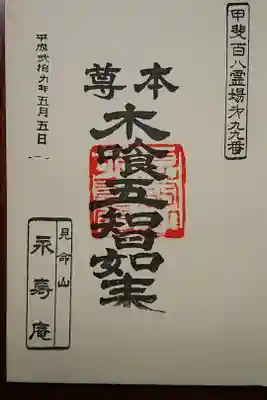 甲斐百八霊場第九九番
本尊
木喰五智如来
平成弐拾九年五月五日
見命山
永寿庵